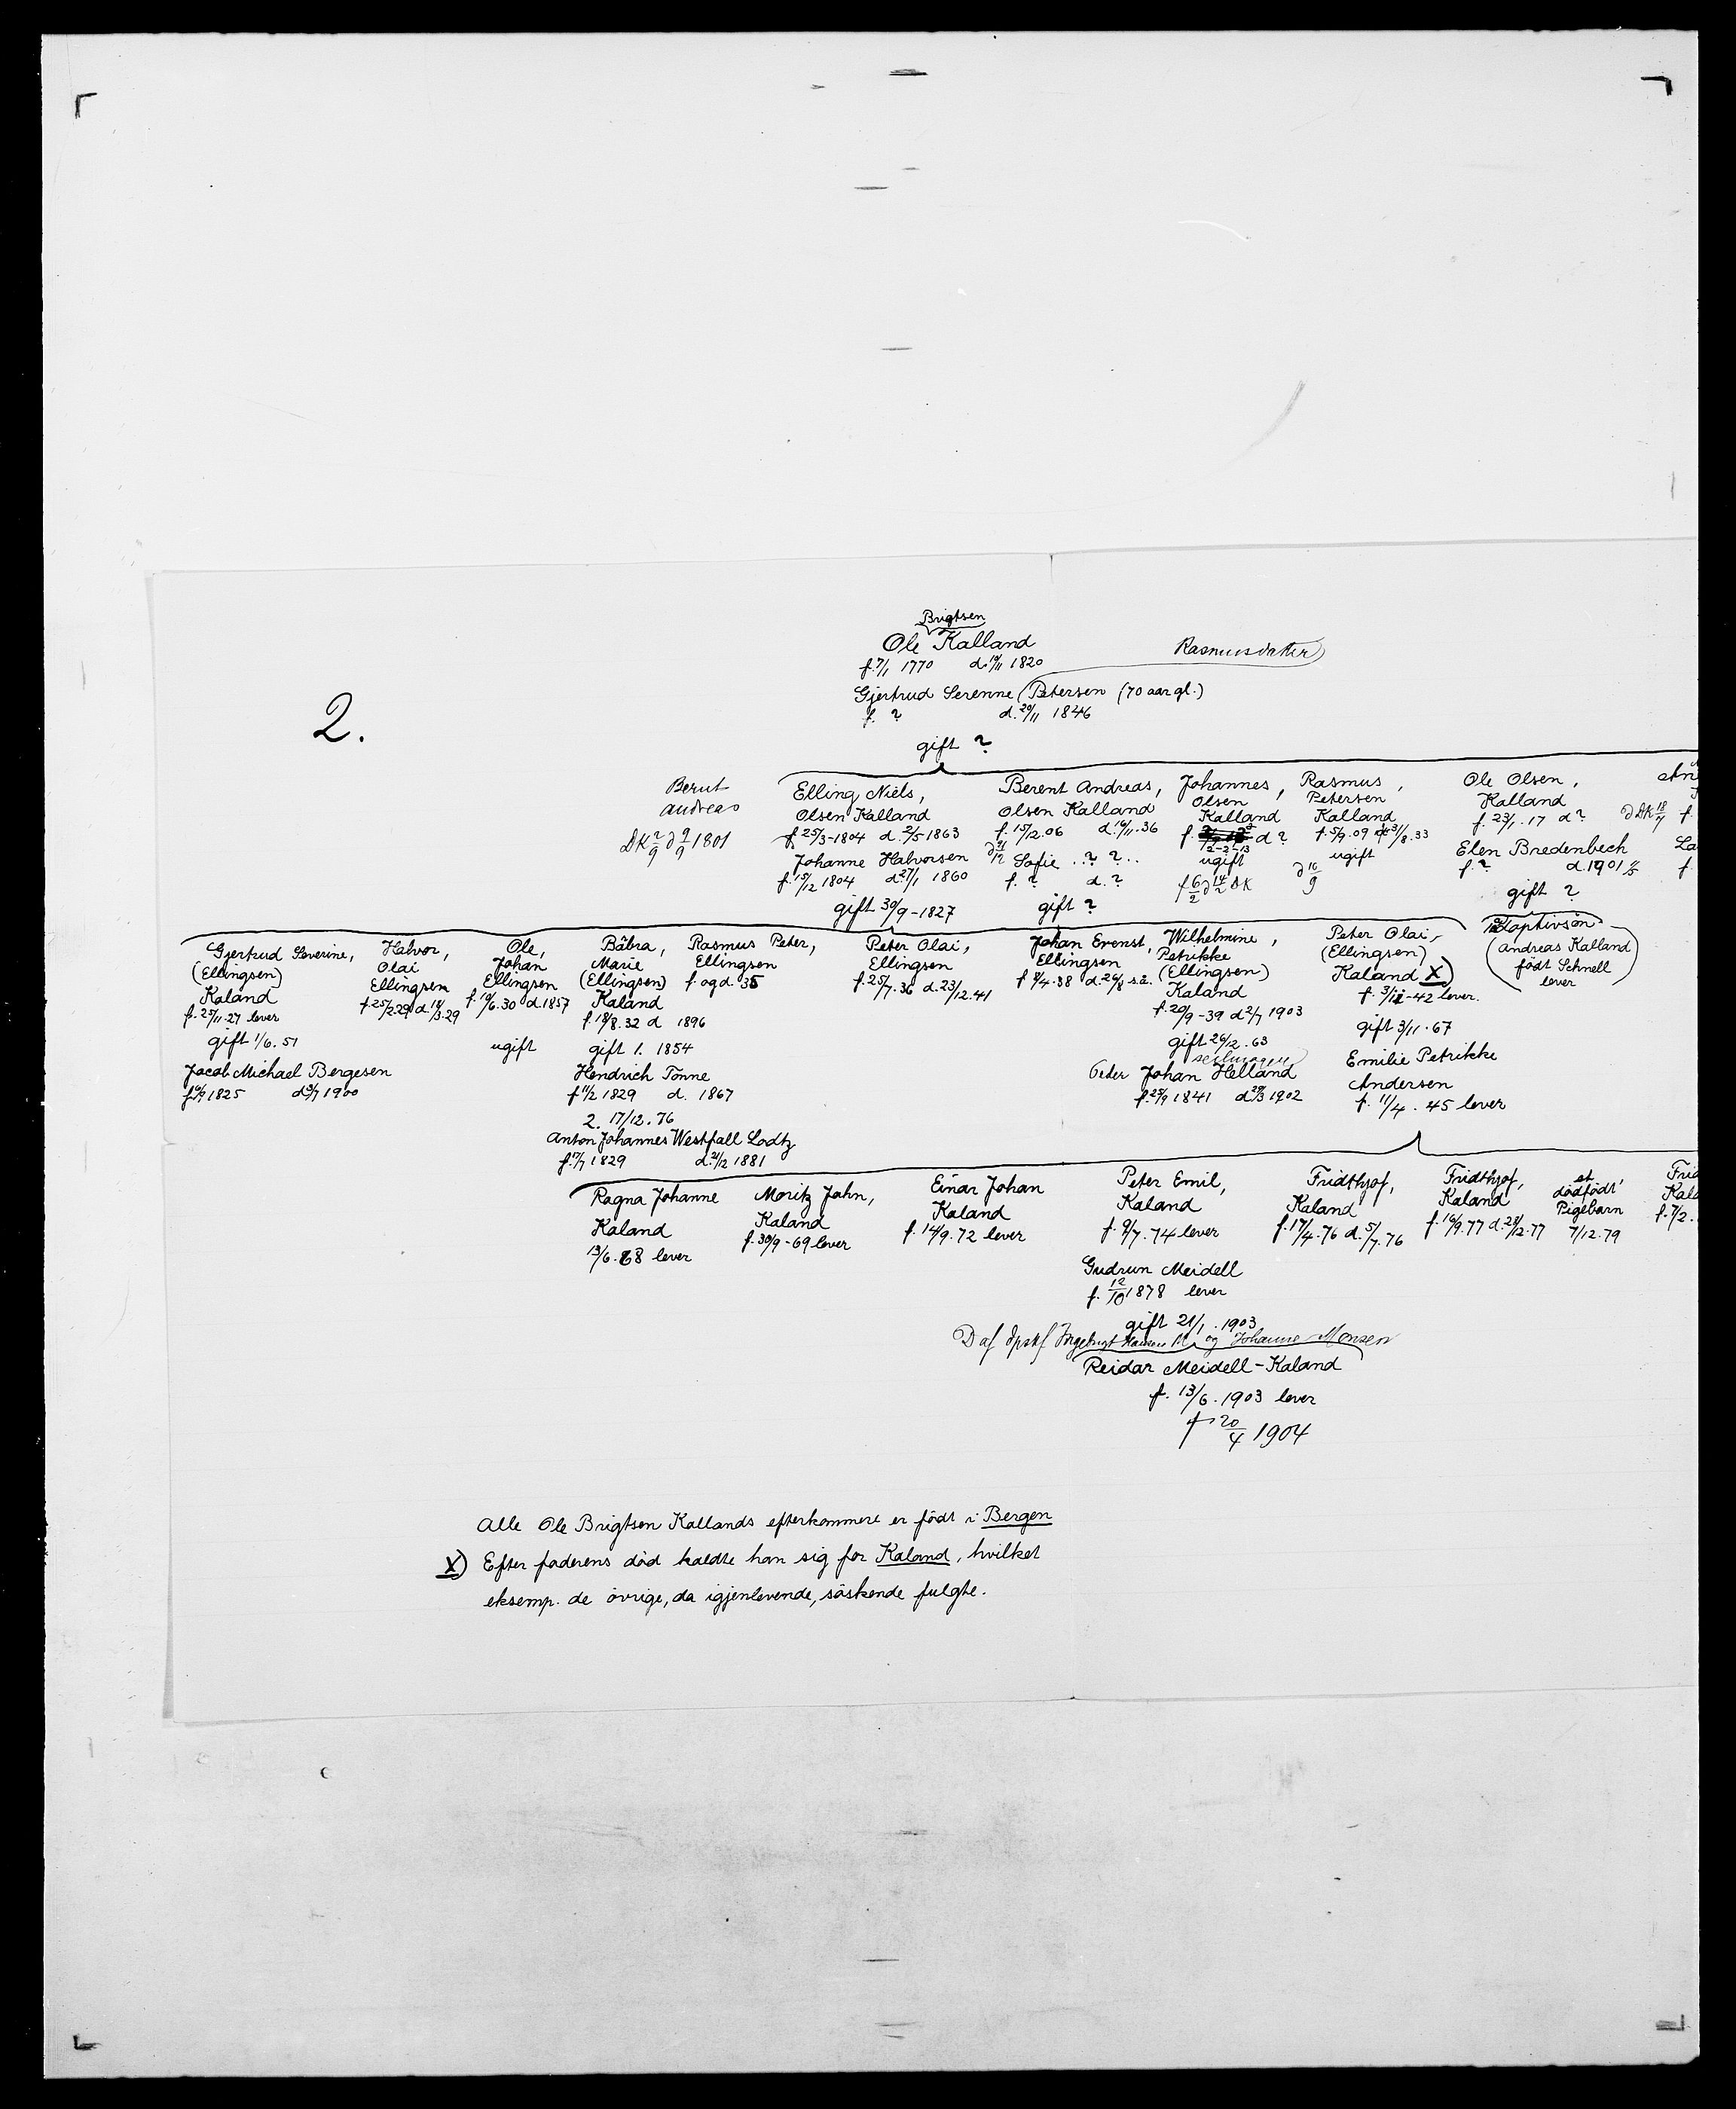 2.
Brigtsen
Ole Kalland
f. 7/1 1770 d. 19/11 1820
Rasmusdatter
Gjertrud Serenne (Petersen (70 aar gl.)
f. ? d. 20/11 1846
gift ?
Bernt
Andreas
DK 2/9 ∂ 9/9 1801
Elling Niels,
Olsen Kalland
f. 25/3-1804 d. 2/5 1863
Johanne Halvorsen
f. 15/12 1804 d. 27/1 1860
gift 30/9-1827
Berent Andreas,
Olsen Kalland
f. 15/2.06 d. 16/11.36
Sofie ..? ?..
f. ? d. ?
gift ?
Johannes,
Olsen
Kalland
f. d ?
12-2-13
ugift
f 6/2 ∂ 14/2 DK
Rasmus,
Petersen
Kalland
f. 5/9.09 d. 31/8.33
ugift
∂ 10/9
Ole Olsen,
Kalland
f. 23/1.17 d ?
Elen Bredenbech
f. ? d. 1901
gift ?
∂ DK 18/7 f.
La
f.
Gjertrud Severine,
(Ellingsen)
Kaland
f. 25/11-27 lever
gift 1/6.51
Jacob Michael Bergesen
1825 1900
Halvor,
Olai
Ellingsen
f. 25/2.29 d. 18/3.29
Ole,
Johan
Ellingsen
f. 19/6.30 d. 1857
ugift
Bâbra,
Marie
(Ellingsen)
Kaland
f. 18/8.32 d 1896
gift 1. 1854
Hendrich Tönne
f. 11/2 1829 d. 1867
2. 17/12.76
Anton Johannes Westfall Lodtz
f. 17/7 1829 d. 21/12 1881
Rasmus Peter,
Ellingsen
f. og d. 35
Peter Olai,
Ellingsen
f. 25/7.36 d. 23/12.41
Johan Ernst,
Ellingsen
f 8/4.38 d. 26/8 s.a.
Wilhelmine,
Petrikke
(Ellingsen)
Kaland
f. 20/9-39 d 2/7 1903
gift 26/2.63
Peder Johan Helland
f. 25/9 1841 d. 29/3 1902
Peter Olai,
(Ellingsen)
Kaland X)
f. 3/12-42 lever.
gift 3/11.67
Emilie Petrikke
Andersen
f. 11/4.45 lever
Adaptivsön
(Andreas Kalland
födt Schnell
lever)
Ragna Johanne
Kaland
13/6.68 lever
Moritz Jahn,
Kaland
f. 30/9-69 lever
Einar Johan
Kaland
f. 14/9.72 lever
Peter Emil,
Kaland
f. 9/7.74 lever
Gudrun Meidell
f. 12/10 1878 lever
gift 21/1.1903
D af Ingebrigt M. og Johanne Monsen
Reidar Meidell-Kaland
f. 13/6.1903 lever
† 20/4 1904
Fridthjof,
Kaland
f. 17/4.76 d. 5/7.76
Fridthjof,
Kaland
f. 16/9.77 d. 28/12.77
et
dödfödt
Pigebarn
7/12.79
Frid
Kala
f. 7/2.
Alle Ole Brigtsen Kallands efterkommere er födt i Bergen
X) Efter faderens död kaldte han sig for Kaland, hvilket
eksemp. de övrige, da igjenlevende, söskende fulgte.